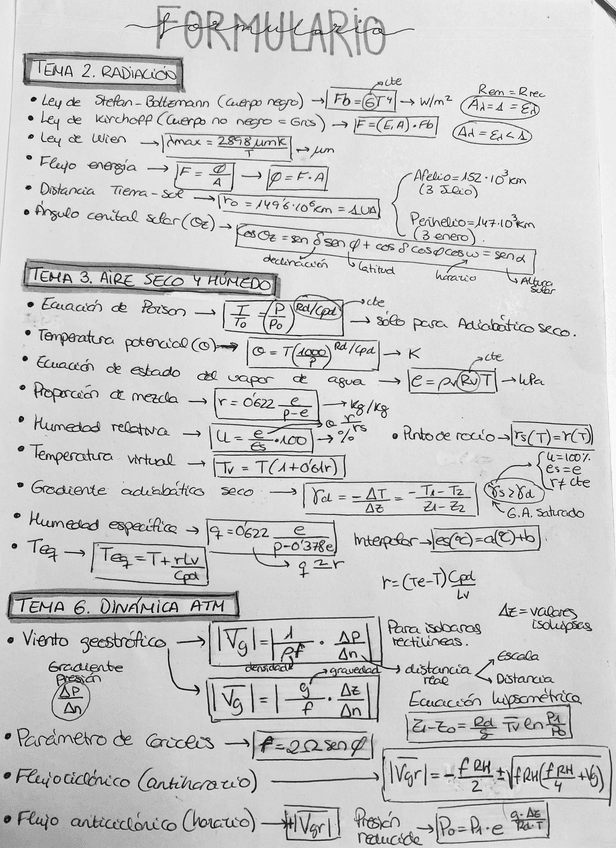 FORMULARIO
formulario
TEMA 2. RADIACIÓN
• Ley de Stefan-Boltzmann (cuerpo negro) → Fb = σT⁴ → W/m² cte Rem = Rrec
• Ley de Kirchoff (cuerpo no negro = Gris) → F = (E, A) · Fb Aλ = 1 = Ελ
• Ley de Wien → λmax = 2898 μmK / T → μm Aλ = Ελ < 1
• Flujo energía → F = ϕ/A → ϕ = F · A
• Distancia Tierra-sol → ro = 149'6·10⁶ km = 1UA
Afelio = 152·10³ km
(3 Julio)
Perihelio = 147·10³ km
(3 enero).
• Ángulo cenital solar (θz) → cosθz = sen δ sen φ + cos δ cosφ cosω = senα
declinación latitud horario Altura solar
TEMA 3. AIRE SECO Y HÚMEDO
• Ecuación de Poison → T/To = (P/Po)^Rd/Cpd cte → sólo para Adiabático seco.
• Temperatura potencial (θ) → θ = T(1000/P)^Rd/Cpd → K
• Ecuación de estado del vapor de agua → e = ρv Rv T → hPa cte
• Proporción de mezcla → r = 0'622 e/p-e → kg/kg
• Humedad relativa → U = e/es · 100 → % o r/rs
• Punto de rocío → rs(T) = r(T)
• Temperatura virtual → Tv = T(1+0'61r)
u = 100%
es = e
r ≠ cte
• Gradiente adiabático seco → γd = -ΔT/ΔZ = -T1-T2/Z1-Z2 γs≥γd
G.A. saturado
• Humedad específica → q = 0'622 e/p-0'378e
q ≃ r
Interpolar → es(℃) = a(℃)+b
• Teq → Teq = T + rLv/Cpd
r = (Te-T) Cpd/Lv
TEMA 6. DINÁMICA ATM
• Viento geostrófico → |Vg| = |1/ρf · ΔP/Δn|
Para isobaras rectilíneas.
ΔZ = valores isohipsas
densidad
distancia real
Escala
Distancia
Gradiente
Presión
ΔP/Δn
gravedad
|Vg| = |g/f · ΔZ/Δn|
Ecuación hipsométrica
Z1-Z0 = Rd/g Tv ln P1/P0
• Parámetro de Coriolis → f = 2Ω senφ
• Flujo ciclónico (antihorario) → |Vgr| = -fRH/2 ± √fRH(fRH/4 + Vg)
• Flujo anticiclónico (horario) → |Vgr|
Presión reducida → P0 = P1 · e^g·ΔZ/Rd·T